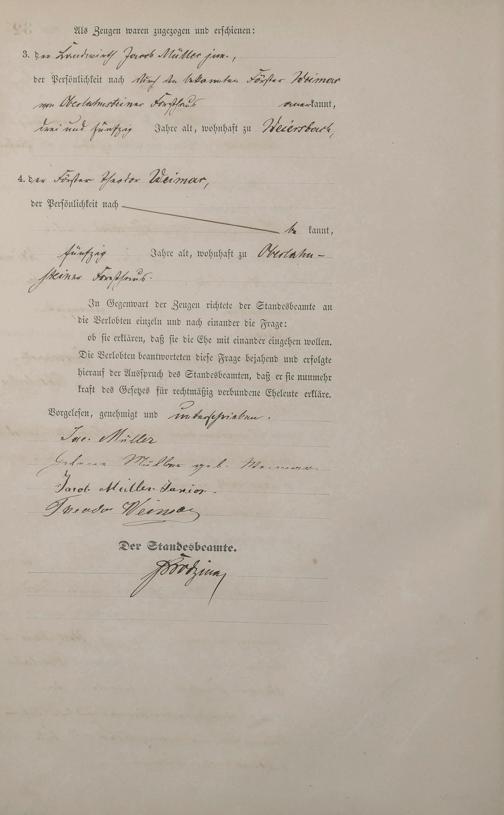 Als Zeugen waren zugezogen und erschienen:
3. der Landwirth Jacob Müller jun.,
der Persönlichkeit nach durch den bekannten Förster Weimar
von Oberlahnsteiner Forsthaus anerkannt,
drei und fünfzig Jahre alt, wohnhaft zu Weiersbach,
4. der Förster Theodor Weimar,
der Persönlichkeit nach
be kannt,
fünfzig Jahre alt, wohnhaft zu Oberlahn-
steiner Forsthaus.
In Gegenwart der Zeugen richtete der Standesbeamte an
die Verlobten einzeln und nach einander die Frage:
ob sie erklären, daß sie die Ehe mit einander eingehen wollen.
Die Verlobten beantworteten diese Frage bejahend und erfolgte
hierauf der Ausspruch des Standesbeamten, daß er sie nunmehr
kraft des Gesetzes für rechtmäßig verbundene Eheleute erkläre.
Vorgelesen, genehmigt und unterschrieben.
Jac. Müller
Müller geb. Weimar
Jacob Müller Junior.
Theodor Weimar
Der Standesbeamte.